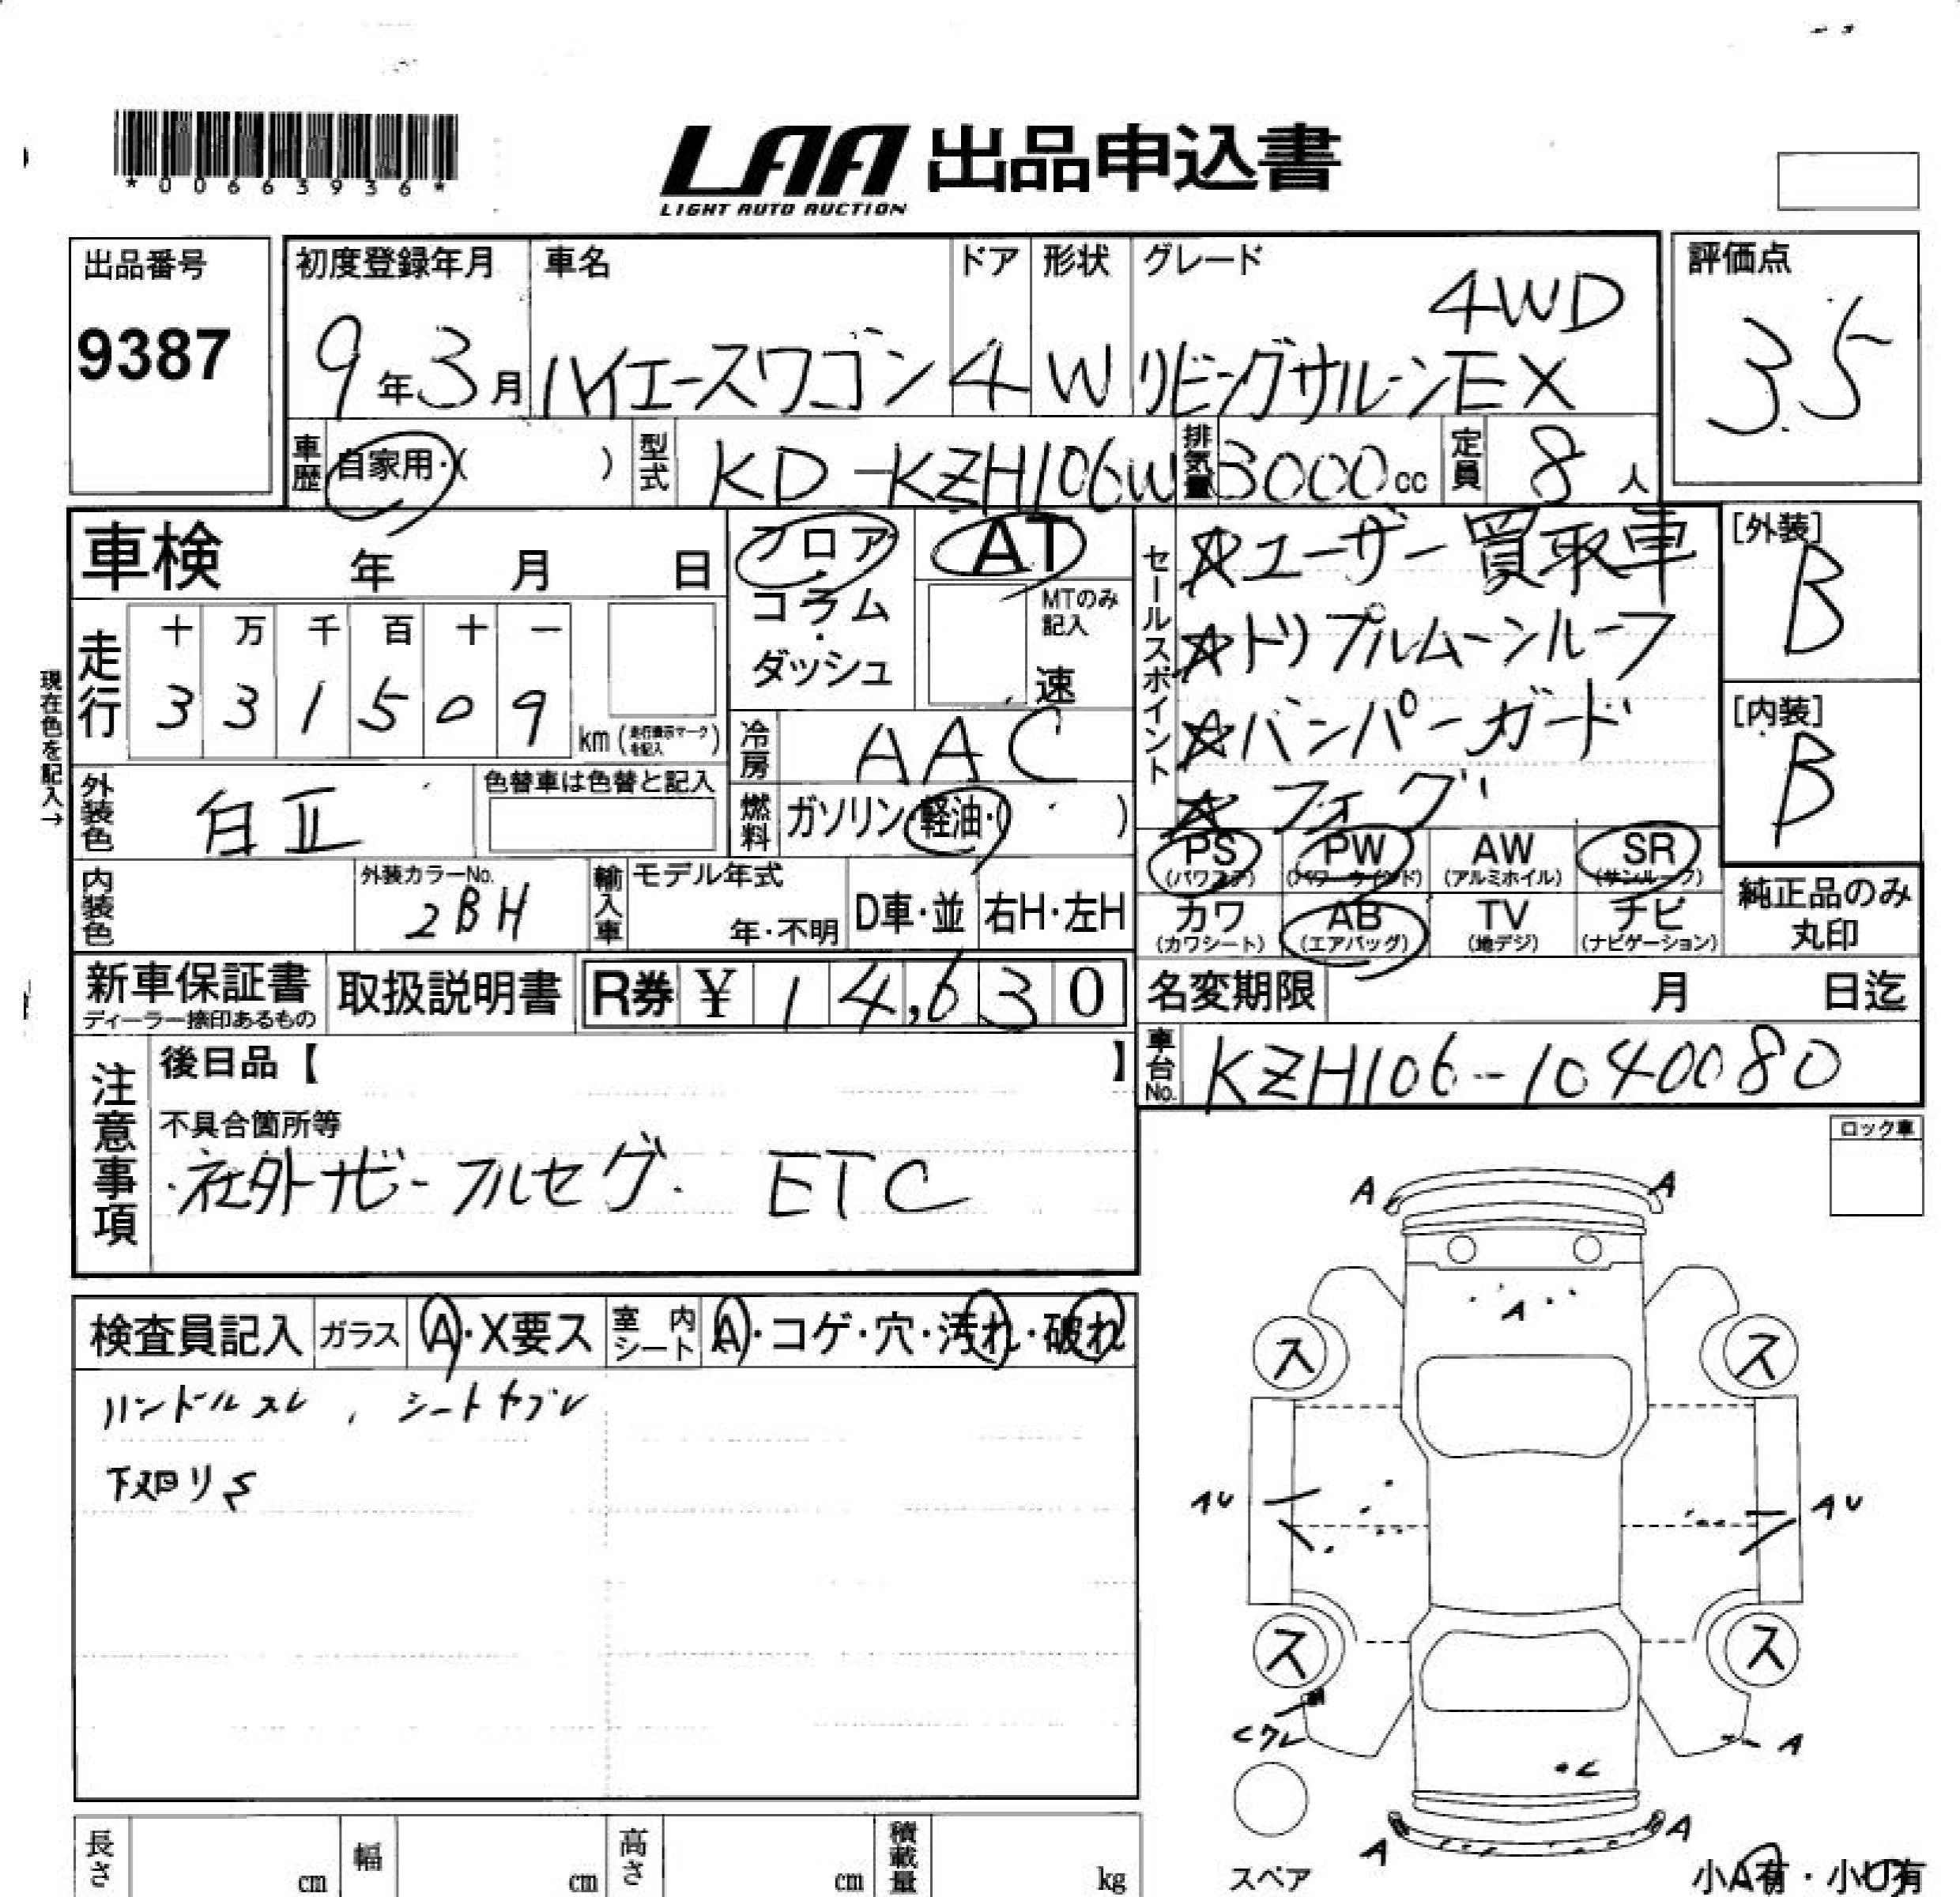 *00663936*
LAA 出品申込書
LIGHT AUTO AUCTION
出品番号
9387
初度登録年月 車名 ドア 形状 グレード
9年3月 ハイエースワゴン 4 W リビングサルーンEX 4WD
評価点
3.5
車歴 自家用・( ) 型式 KD-KZH106W 排気量 3000cc 定員 8人
車検 年 月 日
走行 十 万 千 百 十 一
3 3 1 5 0 9 km (走行表示マークを記入)
現在色を記入→
外装色 白Ⅱ 色替車は色替と記入
内装色 外装カラーNo. 2BH
フロア・コラム・ダッシュ
AT
MTのみ記入
速
冷房 AAC
燃料 ガソリン・軽油・( )
輸入車 モデル年式 年・不明 D車・並 右H・左H
セールスポイント
☆ユーザー買取車
☆トリプルムーンルーフ
☆バンパーガード
☆フォグ
[外装]
B
[内装]
B
PS (パワステ) PW (パワーウインド) AW (アルミホイル) SR (サンルーフ)
カワ (カワシート) AB (エアバッグ) TV (地デジ) ナビ (ナビゲーション)
純正品のみ丸印
新車保証書 ディーラー捺印あるもの
取扱説明書
R券 ¥ 14,630
名変期限 月 日迄
車台No. KZH106-1040080
注意事項
後日品【 】
不具合箇所等
・社外ナビ-フルセグ. ETC
ロック車
検査員記入 ガラス A・X要ス 室内シート A・コゲ・穴・汚れ・破れ
ハンドルスレ, シートヤブレ
下廻りS
A A
A
ス ス
AU AU
ス ス
A
A A
スペア
小A有・小U有
長さ cm 幅 cm 高さ cm 積載量 kg